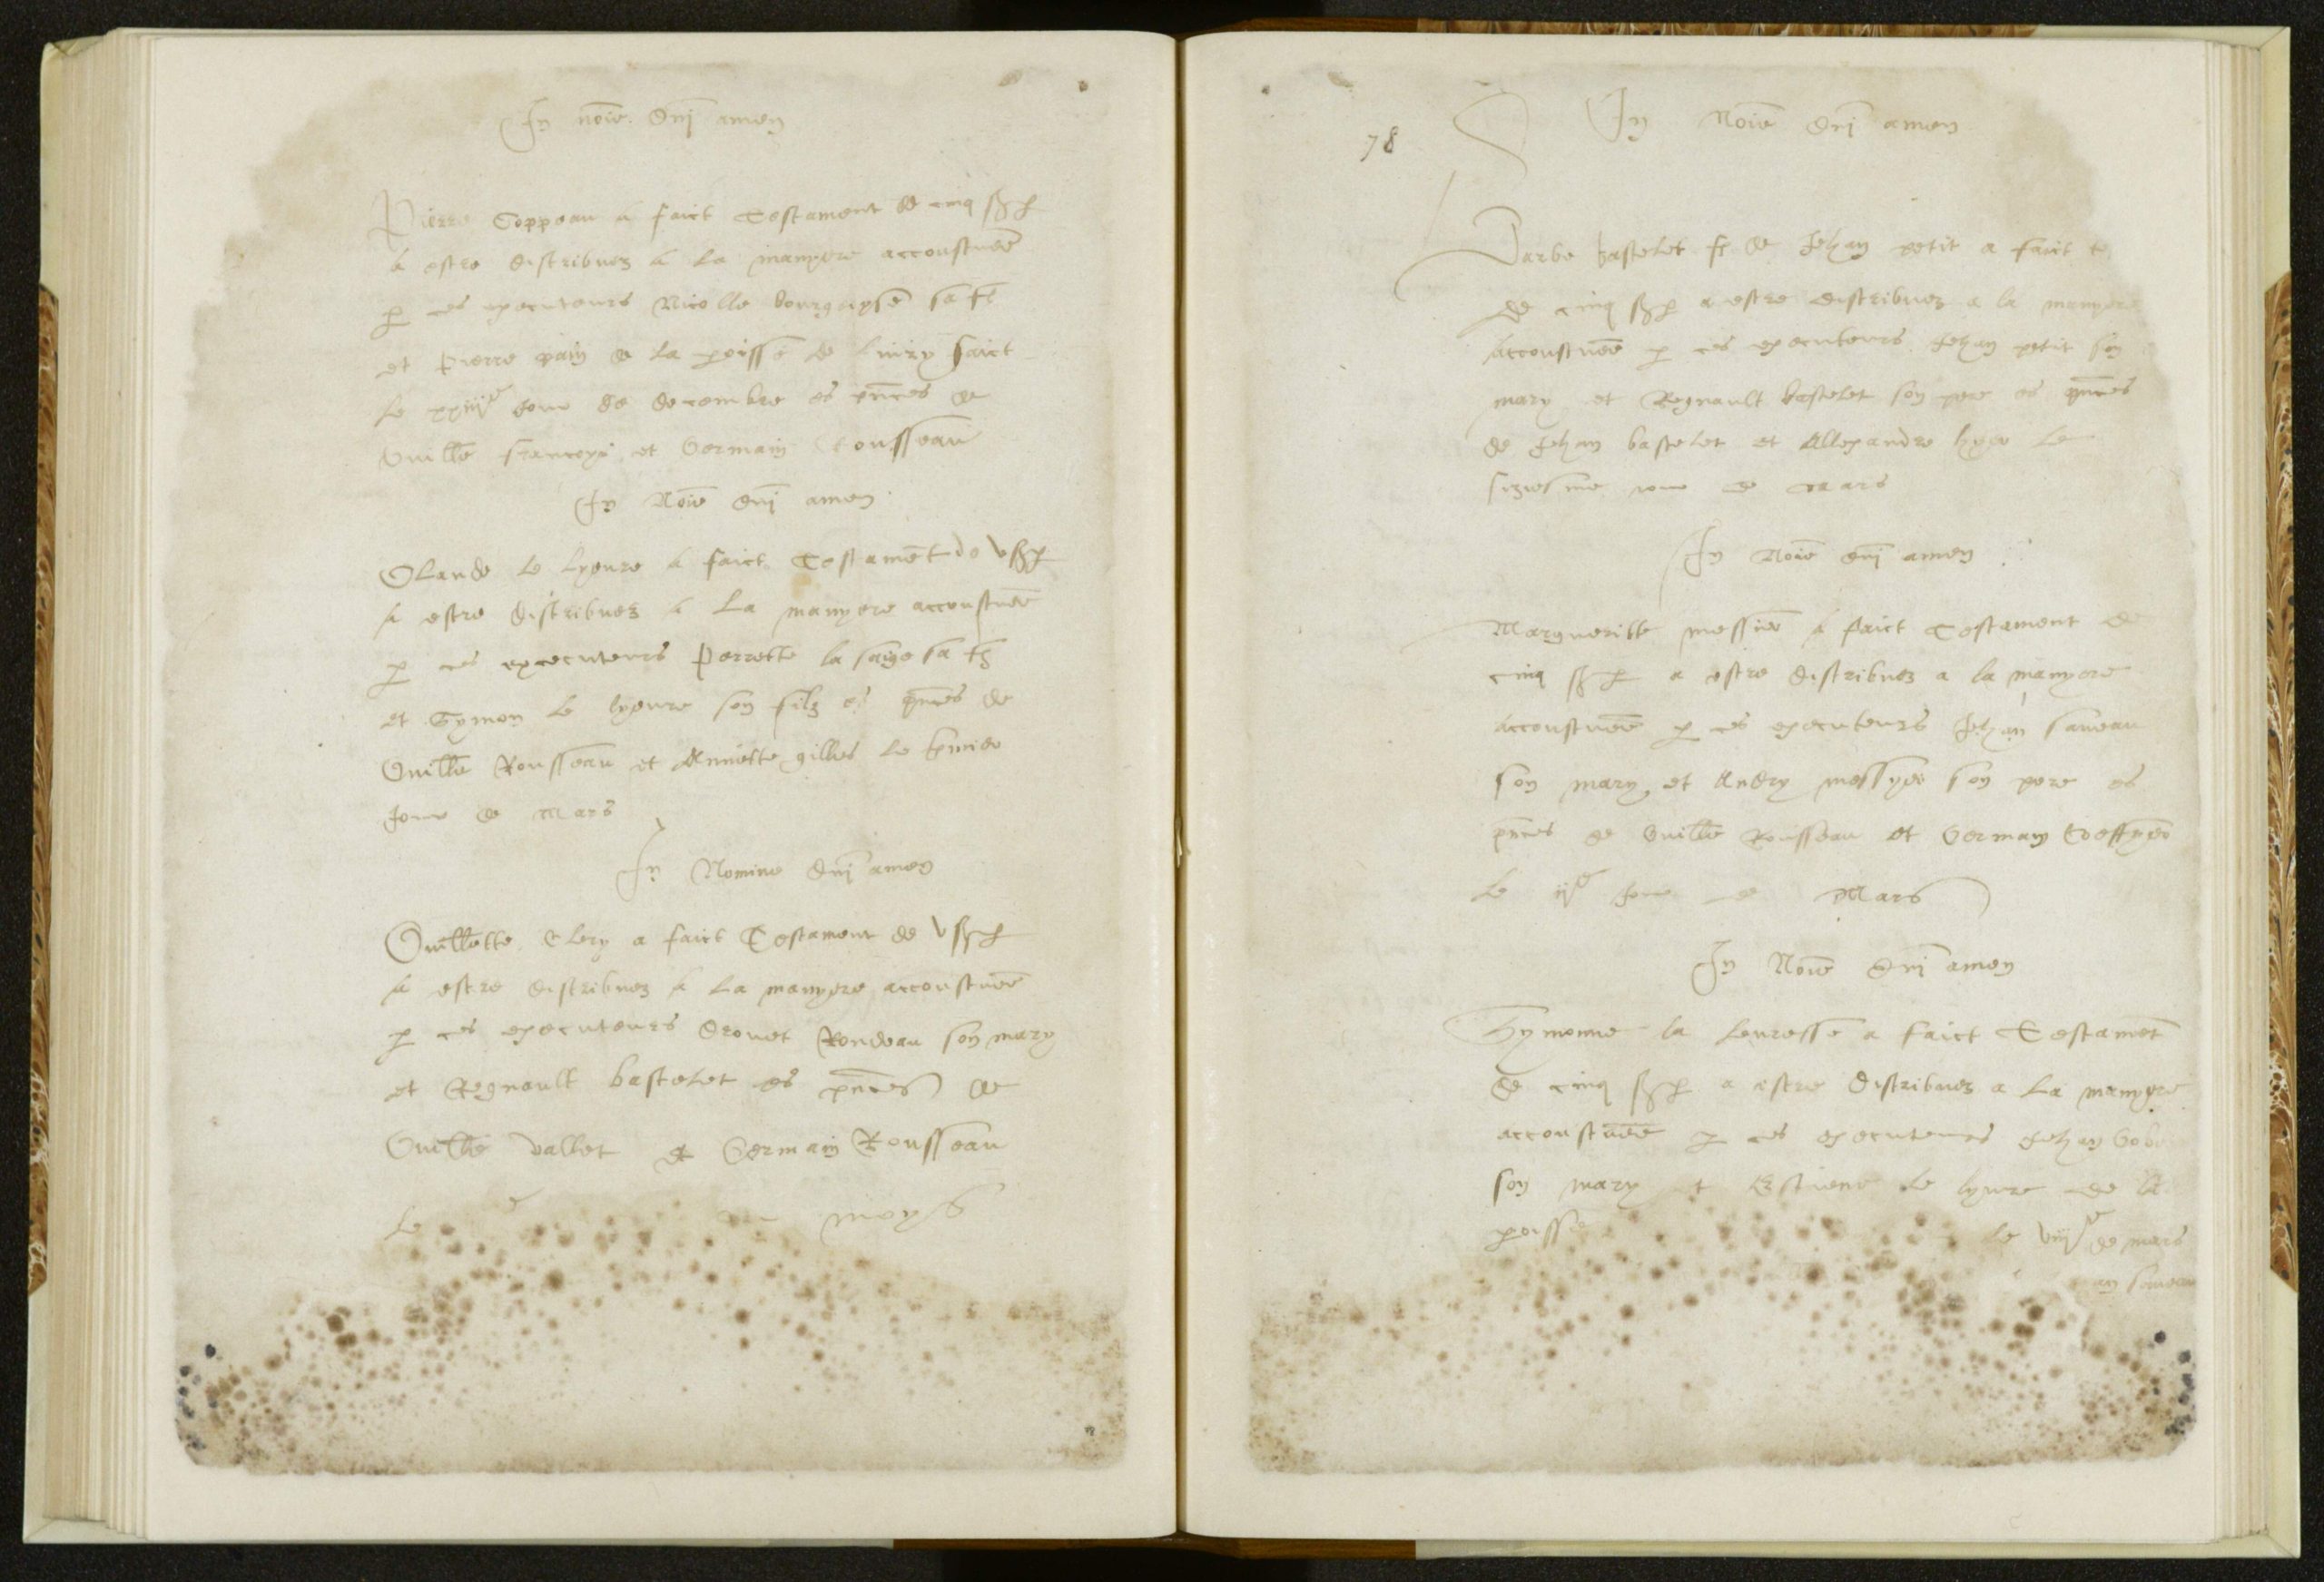 In noīe dnī amen
Pierre Coppeau a faict testament de cinq s p
a estre distribuez a la manyere accoustueē
p ces executeurs Nicolle bourgoyse sa fē
et Pierre pain de la poisse de livry faict
le xxiiiie jour de decembre es pn̄ces de
Guille francoys et Germain Rousseau
In Noīe dnī amen
Olande le lyeure a faict testamēt de v s p
a estre distribuez a la manyere accoustueē
p ces executeurs Perrette la saige sa fē
et Symon le lyeure son filz es pn̄ces de
Guille Rousseau et Annette gilles le pmier
jour de Mars
In Nomine dnī amen
Guillette Clery a faict testament de v s p
a estre distribuez a la manyere accoustueē
p ces executeurs Drouet Rondeau son mary
et Regnault bastelet es pn̄ces de
Guille vallet et Germain Rousseau
le moys
78
In Noīe dnī amen
Barbe bastelet fē de Jehan petit a faict te
de cinq s p a estre distribuez a la manyere
accoustueē p ces executeurs Jehan petit son
mary et Regnault bastelet son pere es pn̄ces
de Jehan bastelet et Allexandre le
siziesme jour de mars
In Noīe dnī amen
Margueritte messier a faict testament de
cinq s p a estre distribuez a la manyere
accoustueē p ces executeurs Jehan saveau
son mary et Andry messyer son pere es
pn̄ces de Guille Rousseau et Germain
le iie jour de Mars
In Noīe dnī amen
Symonne la leuresse a faict testamēt
de cinq s p a estre distribuez a la manyere
accoustueē p ces executeurs Jehan Gobe
son mary et Estiene le lyeure de la
poisse le viiie de mars